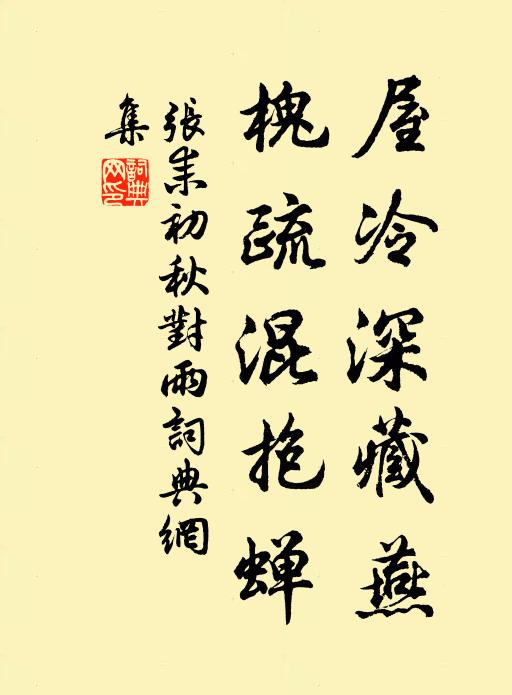 屋冷深藏燕
槐疏混抱蝉
張耒初秋對雨詞典網
集
詞典
网印